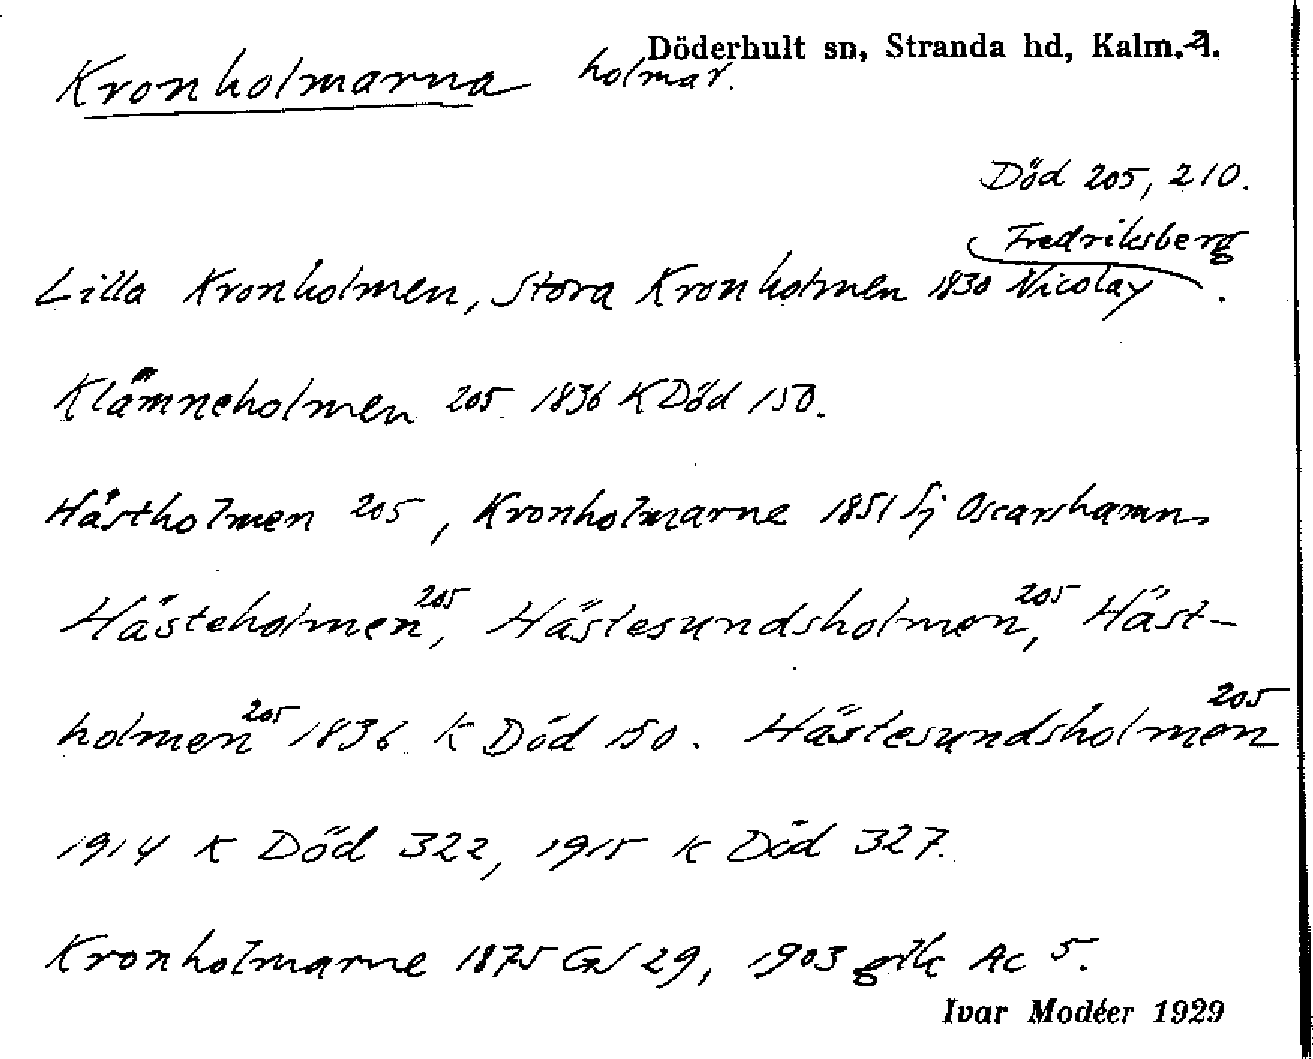 Döderhult sn, Stranda hd, Kalm. l.
Kronholmarna holmar.
Död 205, 210.
Fredriksberg
Lilla Kronholmen, Stora Kronholmen 1830 Nicolay.
Klämneholmen 205 1836 K Död 150.
Hästholmen 205, Kronholmarne 1851 Sj Oscarshamn
Hästeholmen 205, Hästesundsholmen 205, Häst-
holmen 205 1836 K Död 150. Hästesundsholmen 205
1914 K Död 322, 1915 K Död 327.
Kronholmarne 1875 GS 29, 1903 gik Ac 5.
Ivar Modéer 1929